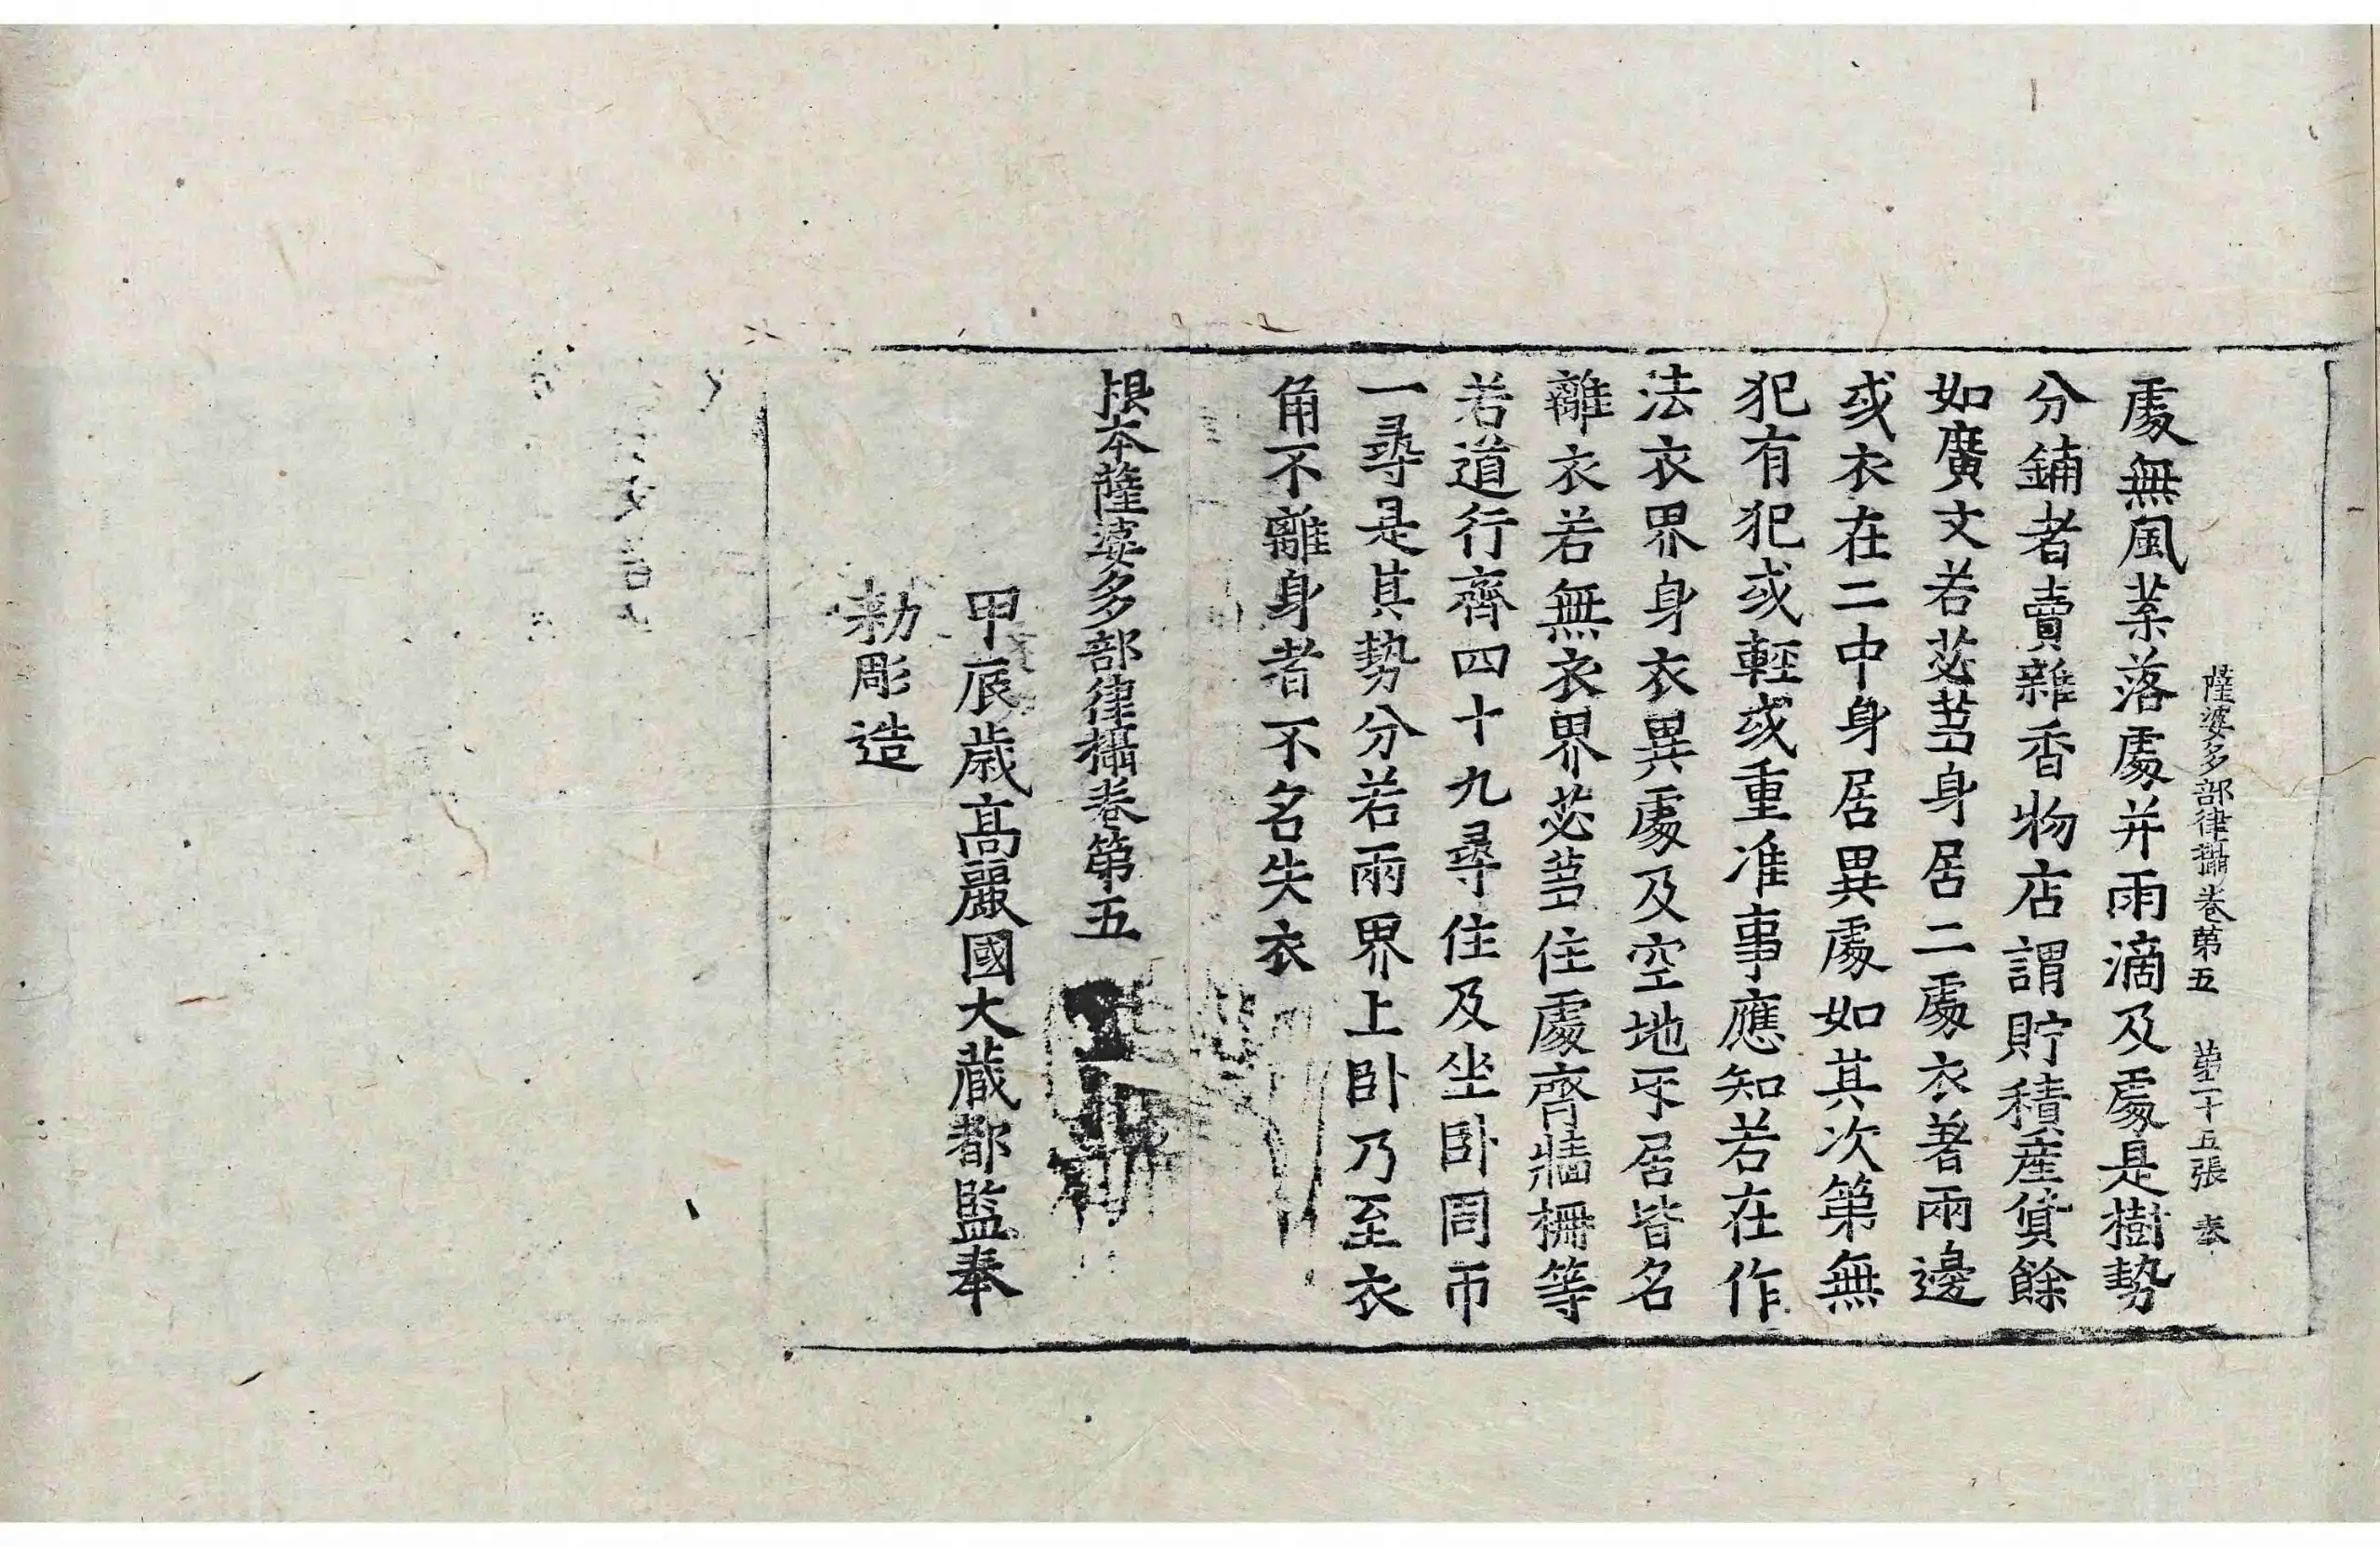 薩婆多部律攝卷第五　第二十五張　夫
處無風葉落處并雨滴及處是樹勢
分鋪者賣雜香物店謂貯積產貨餘
如廣文若苾芻身居二處衣著兩邊
或衣在二中身居異處如其次第無
犯有犯或輕或重准事應知若在作
法衣界身衣異處及空地乎居皆名
離衣若無衣界苾芻住處齊牆柵等
若道行齊四十九尋住及坐卧同帀
一尋是其勢分若兩界上卧乃至衣
角不離身者不名失衣
根本薩婆多部律攝卷第五
甲辰歲高麗國大藏都監奉
勅彫造